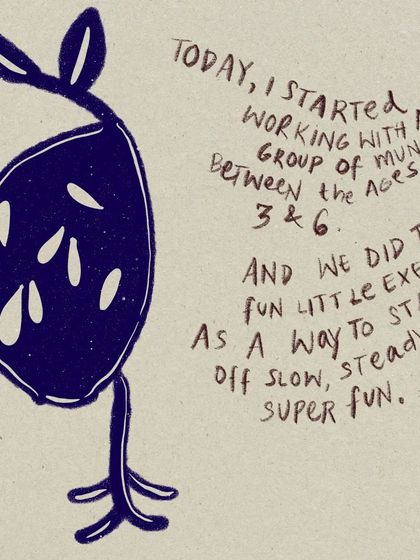 TODAY, I STARTED
WORKING WITH
GROUP OF MUN
BETWEEN the AGES
3 & 6.
AND WE DID
FUN LITTLE EXE
AS A WAY TO ST
OFF SLOW, STEADY
SUPER FUN.